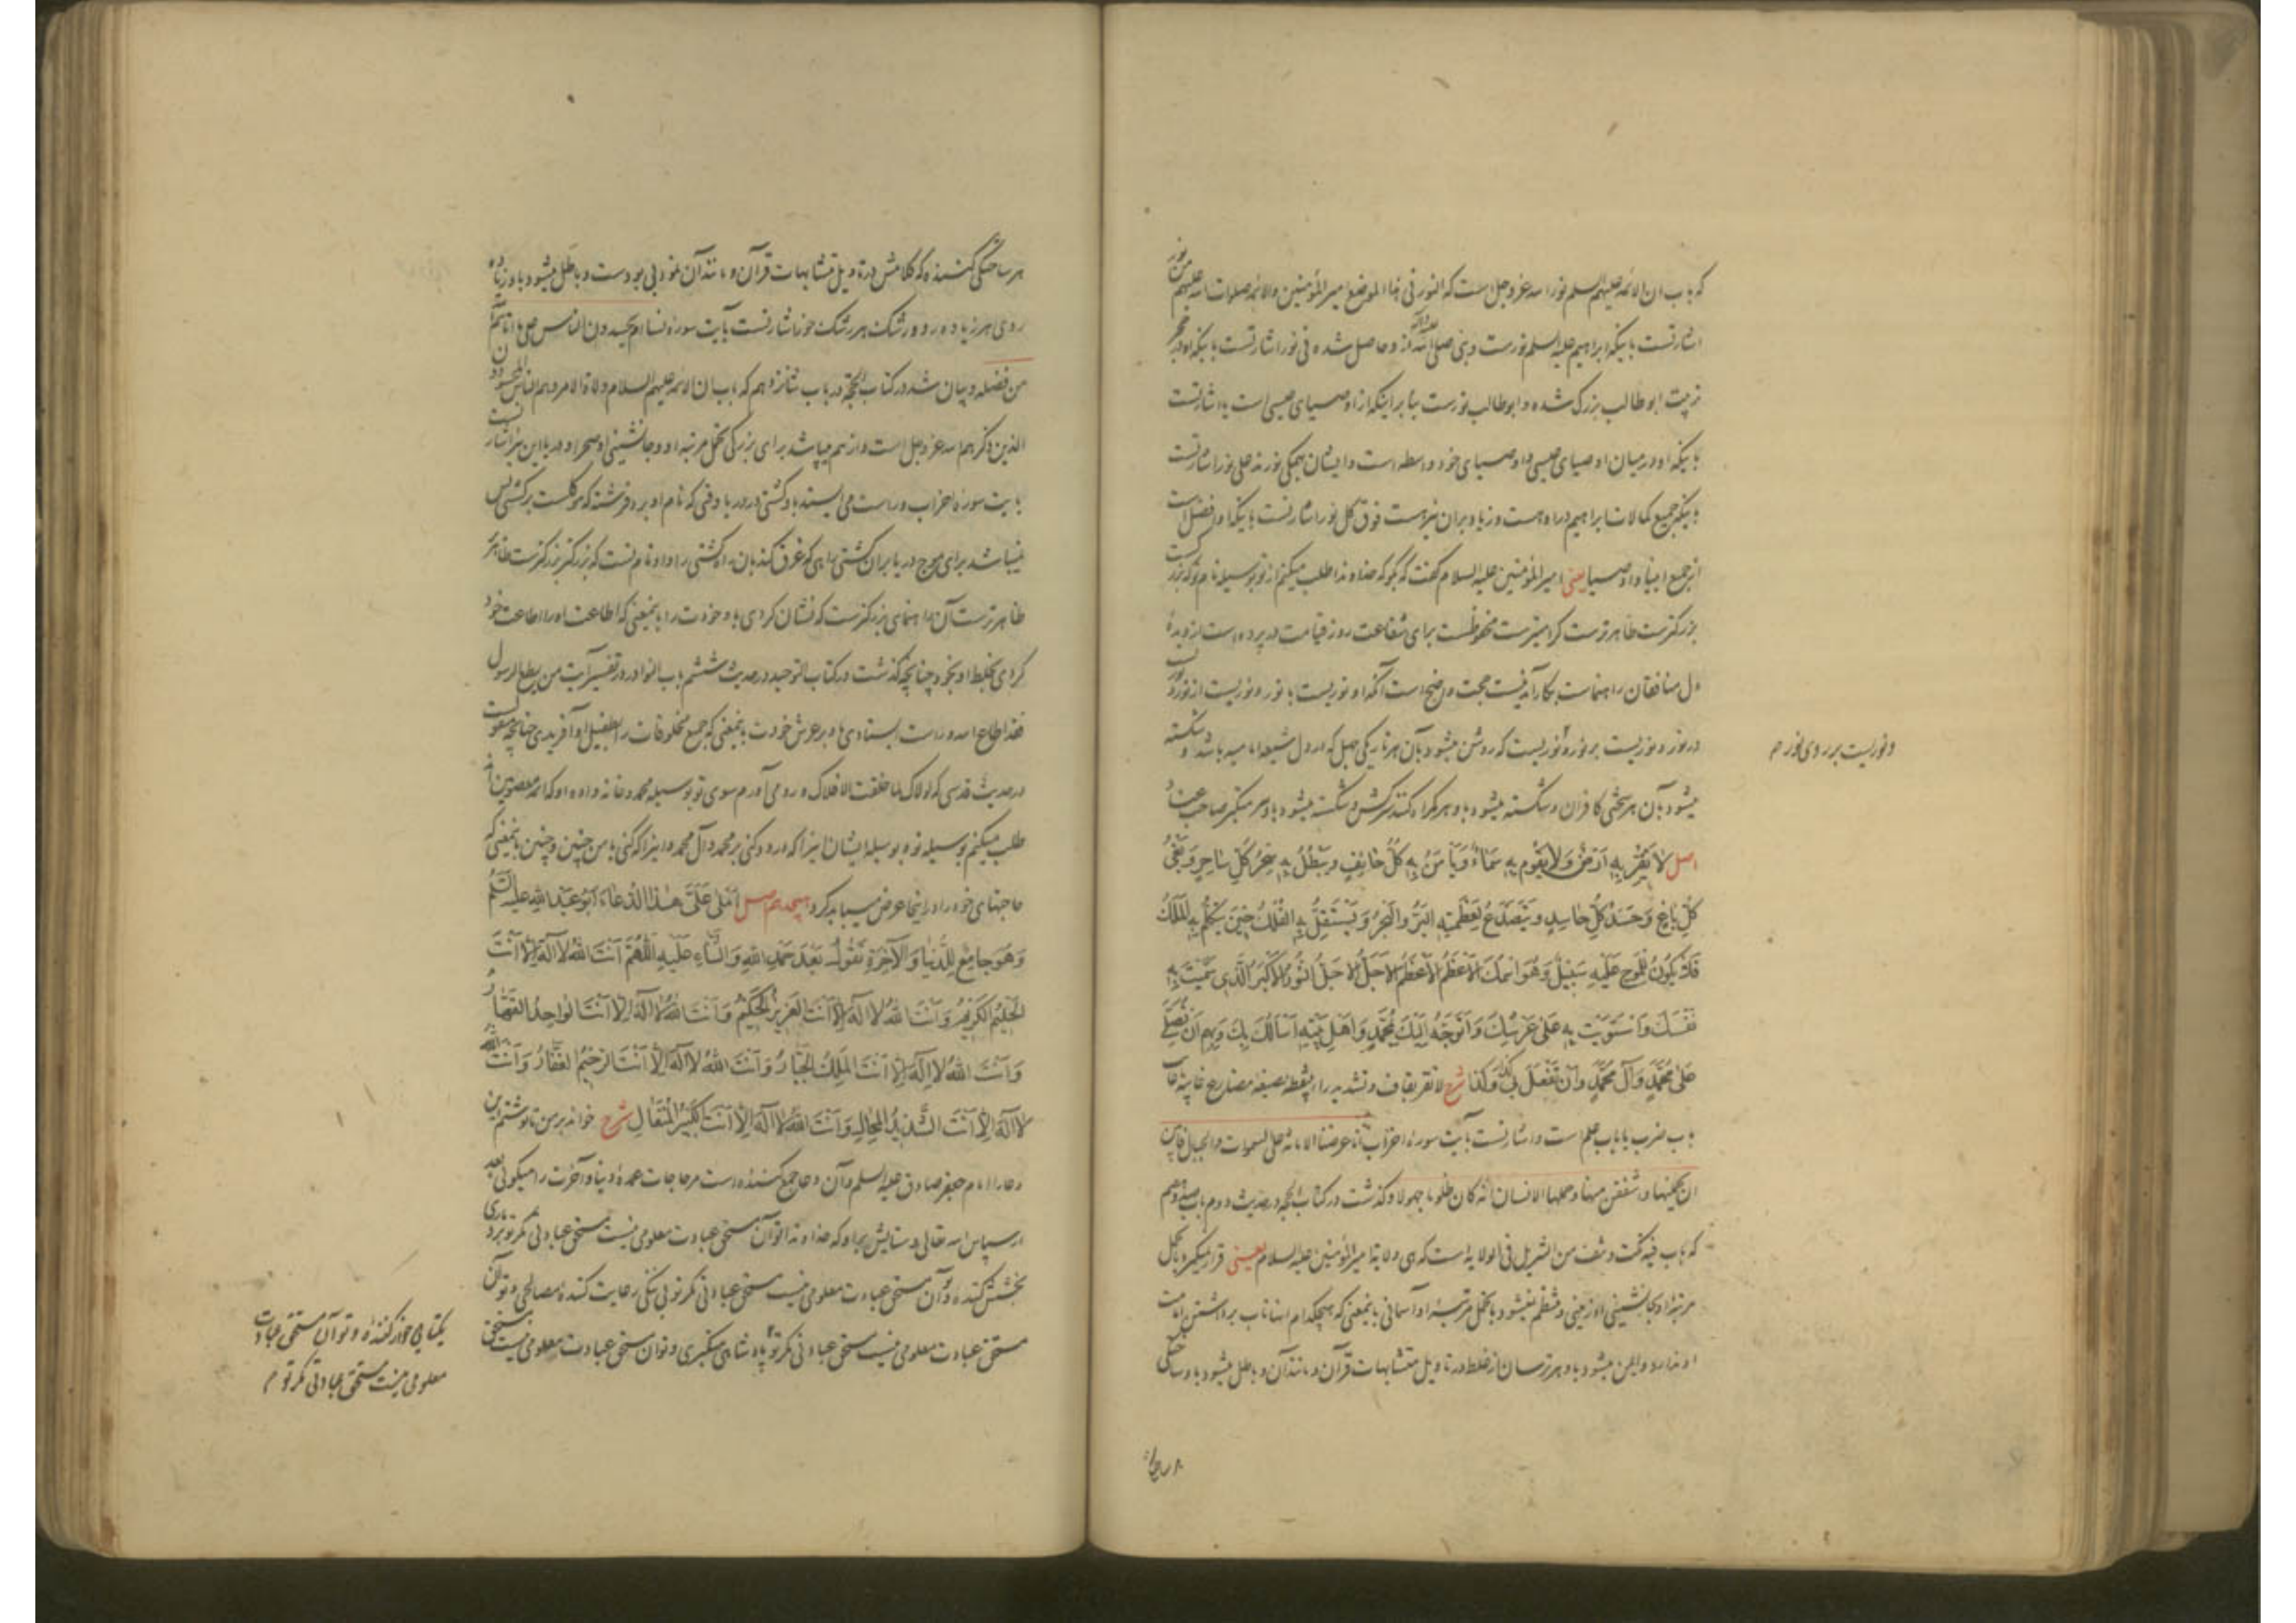 که باب ان الائمه علیهم السلم نور الله عزوجل است که النور فی هذا الموضع امیرالمؤمنین والائمه صلوات الله علیهم من نور
اشارتست باینکه ابراهیم علیه السلم نورست ونبی صلی الله علیه وآله از و حاصل شده فی نور اشارتست باینکه او در حجر
تربیت ابوطالب بزرک شده و ابوطالب نورست بنا بر اینکه از اوصیای عیسی است یا اشارتست
باینکه او در میان اوصیای عیسی و اوصیای خود واسطه است و ایشان همکی نورند علی نور اشارتست
باینکه جمیع کمالات ابراهیم در او هست و زیاد بر آن نیز هست فوق کل نور اشارتست باینکه او افضل است
از جمیع انبیا و اوصیا یعنی امیرالمؤمنین علیه السلام کفت که بکو که خداوندا طلب میکنم از تو بوسیله نام تو که بزرکست
بزرکترست طاهرترست کرامیترست محفوظست برای شفاعت روز قیامت در پرده است از دیدهٔ
دل منافقان راهنماست بکارآمدنیست حجت واضح است آنکه او نوریست با نور و نوریست از نور و نوریست
در نور و نوریست بر نور و نوریست که روشن میشود بآن هر تاریکی جهل که در دل شیعه امامیه باشد و شکسته
ونوریست بر روی نور م
میشود بآن هر سختی کافران و شکسته میشود باو هر کمراه کننده سرکش و شکسته میشود باو هر متکبر صاحب عناد
اصل لا یَقِرُّ بِهِ اَرْضٌ وَلا یَقُومُ بِهِ سَمَاءٌ وَیَأمَنُ بِهِ کُلُّ خَائِفٍ ویَبْطُلُ بِهِ سِحْرُ کُلِّ سَاحِرٍ وَبَغْیُ
کُلِّ بَاغٍ وَحَسَدُ کُلِّ حَاسِدٍ ویَتَصَدَّعُ لِعَظَمَتِهِ البَرُّ والبَحْرُ وَیَسْتَقِلُّ بِهِ الفُلْکُ حِینَ یَتَکَلَّمُ بِهِ المَلَکُ
فَلا یَکُونُ لِلْمَوجِ عَلَیْهِ سَبِیلٌ وَهُوَ اسْمُکَ الاَعْظَمُ الاَعْظَمُ الاَجَلُّ الاَجَلُّ النُّورُ الاَکْبَرُ الَّذِی سَمَّیْتَ بِهِ
نَفْسَکَ وَاسْتَوَیْتَ بِهِ عَلی عَرْشِکَ وَاَتَوَجَّهُ اِلَیْکَ بِمُحَمَّدٍ وَاَهْلِ بَیْتِهِ اَسْأَلُکَ بِکَ وَبِهِم اَنْ تُصَلِّیَ
عَلی مُحَمَّدٍ وَآلِ مُحَمَّدٍ وَاَنْ تَفْعَلَ بِی کَذَا وَکَذَا شرح لا تقر بقاف وتشدید راء بینقطه بصیغهٔ مضارع غایبهٔ
باب ضرب یا باب علم است و اشارتست بآیت سورهٔ احزاب انا عرضنا الامانة علی السموات والجبال فابین
ان یحملنها واشفقن منها وحملها الانسان انه کان ظلوما جهولا وکذشت در کتاب الحجة در حدیث دوم باب
که باب فیه نکت ونتف من التنزیل فی الولایة است که هی ولایة امیرالمؤمنین علیه السلام یعنی قرار نمیکیرد بتحمل
مرتبهٔ او بجانشینی او زمینی و منتظم نمیشود بتحمل مرتبهٔ او آسمانی باینمعنی که هیچکدام اینها تاب برداشتن امامت
او ندارد و ایمن میشود باو هر ترسان از غلط در تاویل متشابهات قرآن و مانند آن و باطل میشود باو ساحری
هر ساحر
هر ساختکی کننده که کلامش در تاویل متشابهات قرآن و مانند آن نمود بی بودست و باطل میشود باو زیاده
روی هر زیاده رو و رشک هر رشک خور اشارتست بآیت سورهٔ نسا ام یحسدون الناس علی ما اتاهم الله
من فضله و بیان شد در کتاب الحجة در باب شانزدهم که باب ان الائمة علیهم السلام ولاة الامر وهم الناس المحسودون
الذین ذکرهم الله عزوجل است و از هم میپاشد برای بزرکی تحمل مرتبهٔ او و جانشینی او صحرا و دریا این نیز اشارتست
بآیت سورهٔ احزاب و راست می ایستد باو کشتی در دریا وقتی که نام او برد فرشته که موکلست بر کشتی پس
نمیباشد برای موج دریا بر آن کشتی راهی که غرق کند بآن راه کشتی را و او نام تست که بزرکتر بزرکترست ظاهر
ظاهرترست آن راهنمای بزرکترست که نشان کردی باو خودت را باینمعنی که اطاعت او را اطاعت خود
کردی بخلط او بخود چنانچه کذشت در کتاب التوحید در حدیث ششم باب النوادر در تفسیر آیت من یطع الرسول
فقد اطاع الله و راست ایستادی باو بر عرش خودت باینمعنی که جمیع مخلوقات را بطفیل او آفریدی چنانچه منقولست
در حدیث قدسی که لولاک لما خلقت الافلاک و رو می آورم سوی تو بوسیله محمد و خانه واده او که ائمه معصومین اند
طلب میکنم بوسیله تو و بوسیله ایشان اینرا که درود کنی بر محمد و آل محمد و اینرا که کنی با من چنین و چنین باینمعنی که
حاجتهای خود را در اینجا عرض میباید کرد هیجدهم اصل اَمْلی عَلَیَّ هٰذَا الدُّعَاءَ اَبُو عَبْدِ اللهِ عَلَیْهِ السَّلَمُ
وَهُوَ جَامِعٌ لِلدُّنْیَا وَالآخِرَةِ تَقُولُ بَعْدَ حَمْدِ اللهِ وَالثَّنَاءِ عَلَیْهِ اَللّٰهُمَّ اَنْتَ اللهُ لا اِلٰهَ اِلّا اَنْتَ
الحَلِیمُ الکَرِیمُ وَاَنْتَ اللهُ لا اِلٰهَ اِلّا اَنْتَ العَزِیزُ الحَکِیمُ وَاَنْتَ اللهُ لا اِلٰهَ اِلّا اَنْتَ الوَاحِدُ القَهَّارُ
وَاَنْتَ اللهُ لا اِلٰهَ اِلّا اَنْتَ المَلِکُ الجَبَّارُ وَاَنْتَ اللهُ لا اِلٰهَ اِلّا اَنْتَ الرَّحِیمُ الغَفَّارُ وَاَنْتَ اللهُ
لا اِلٰهَ اِلّا اَنْتَ الشَّدِیدُ المِحَالِ وَاَنْتَ اللهُ لا اِلٰهَ اِلّا اَنْتَ الکَبِیرُ المُتَعَالِ شرح خواند بر من تا نوشتم این
دعا را امام جعفر صادق علیه السلم و آن دعا جمع کننده است مر حاجات عمدهٔ دنیا و آخرت را میکوئی بعد
از سپاس الله تعالی و ستایش بر او که خداوندا تو آن مستحق عبادت معلومی نیست مستحق عبادتی مکر تو بردباری
بخشش کننده و تو آن مستحق عبادت معلومی نیست مستحق عبادتی مکر تو بی ننکی رعایت کننده مصالحی و تو آن
مستحق عبادت معلومی نیست مستحق عبادتی مکر تو پادشاهی متکبری و تو آن مستحق عبادت معلومی نیست مستحق
یکتایی خوار کننده و تو آن مستحق عبادت
معلومی نیست مستحق عبادتی مکر تو م